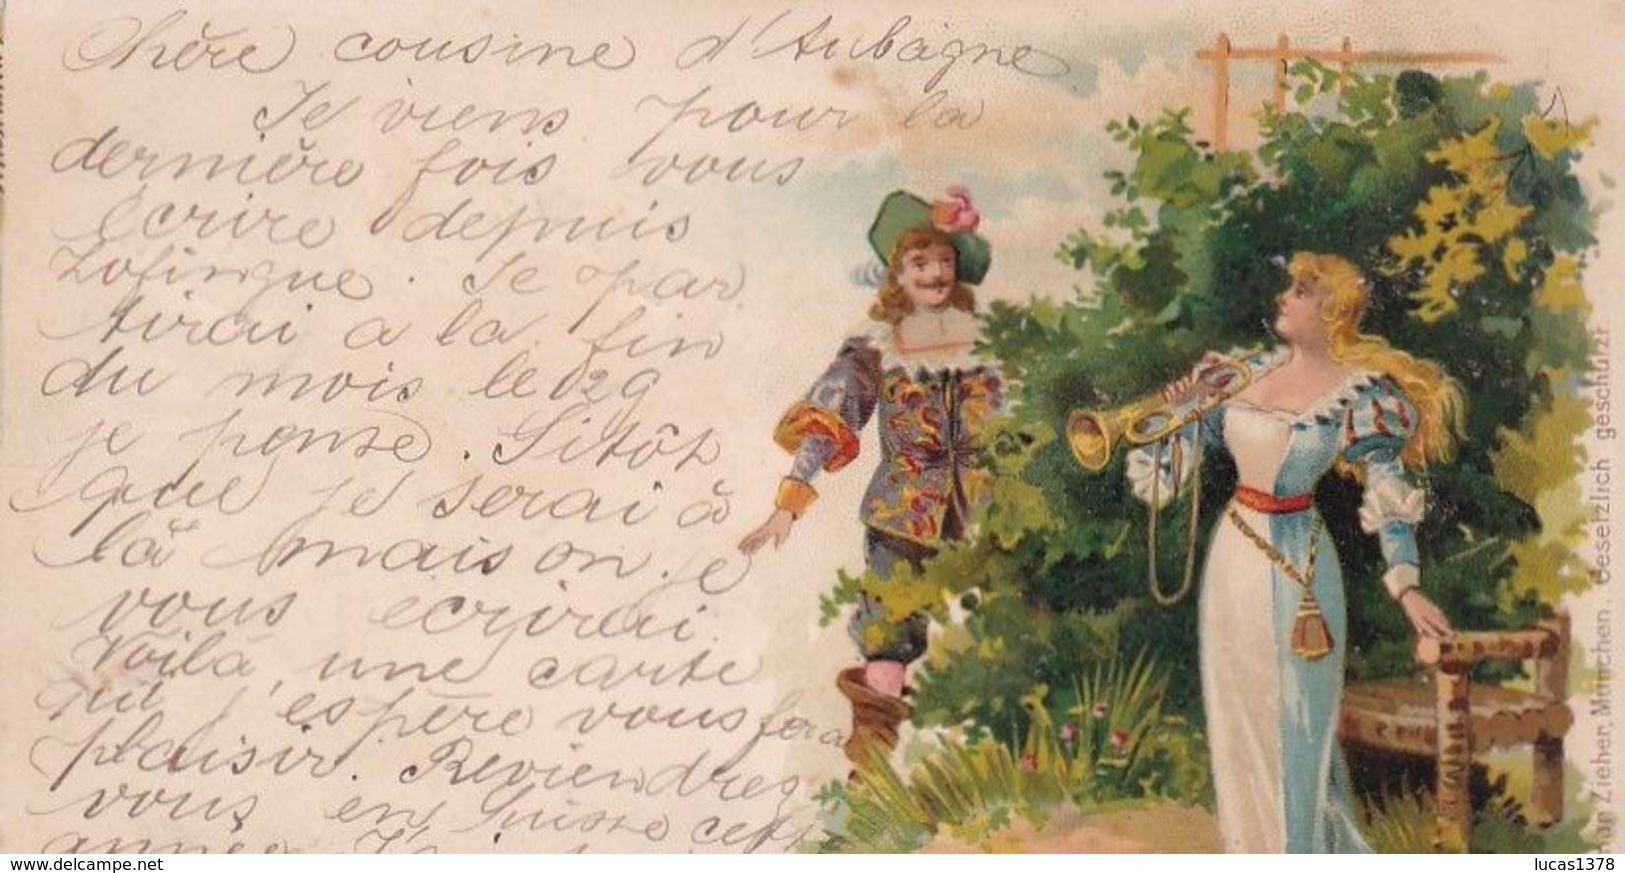 Chère cousine d'Aubagne
Je viens pour la
dernière fois vous
écrire depuis
Zofingue. Je par
tirai a la fin
du mois le 29
je pense. Sitôt
que je serai à
la maison je
vous écrirai.
Voilà une carte
qui j'espère vous fera
plaisir. Reviendrez
vous en Suisse cette
année
Zieher, München. Gesetzlich geschützt
www.delcampe.net
lucas1378